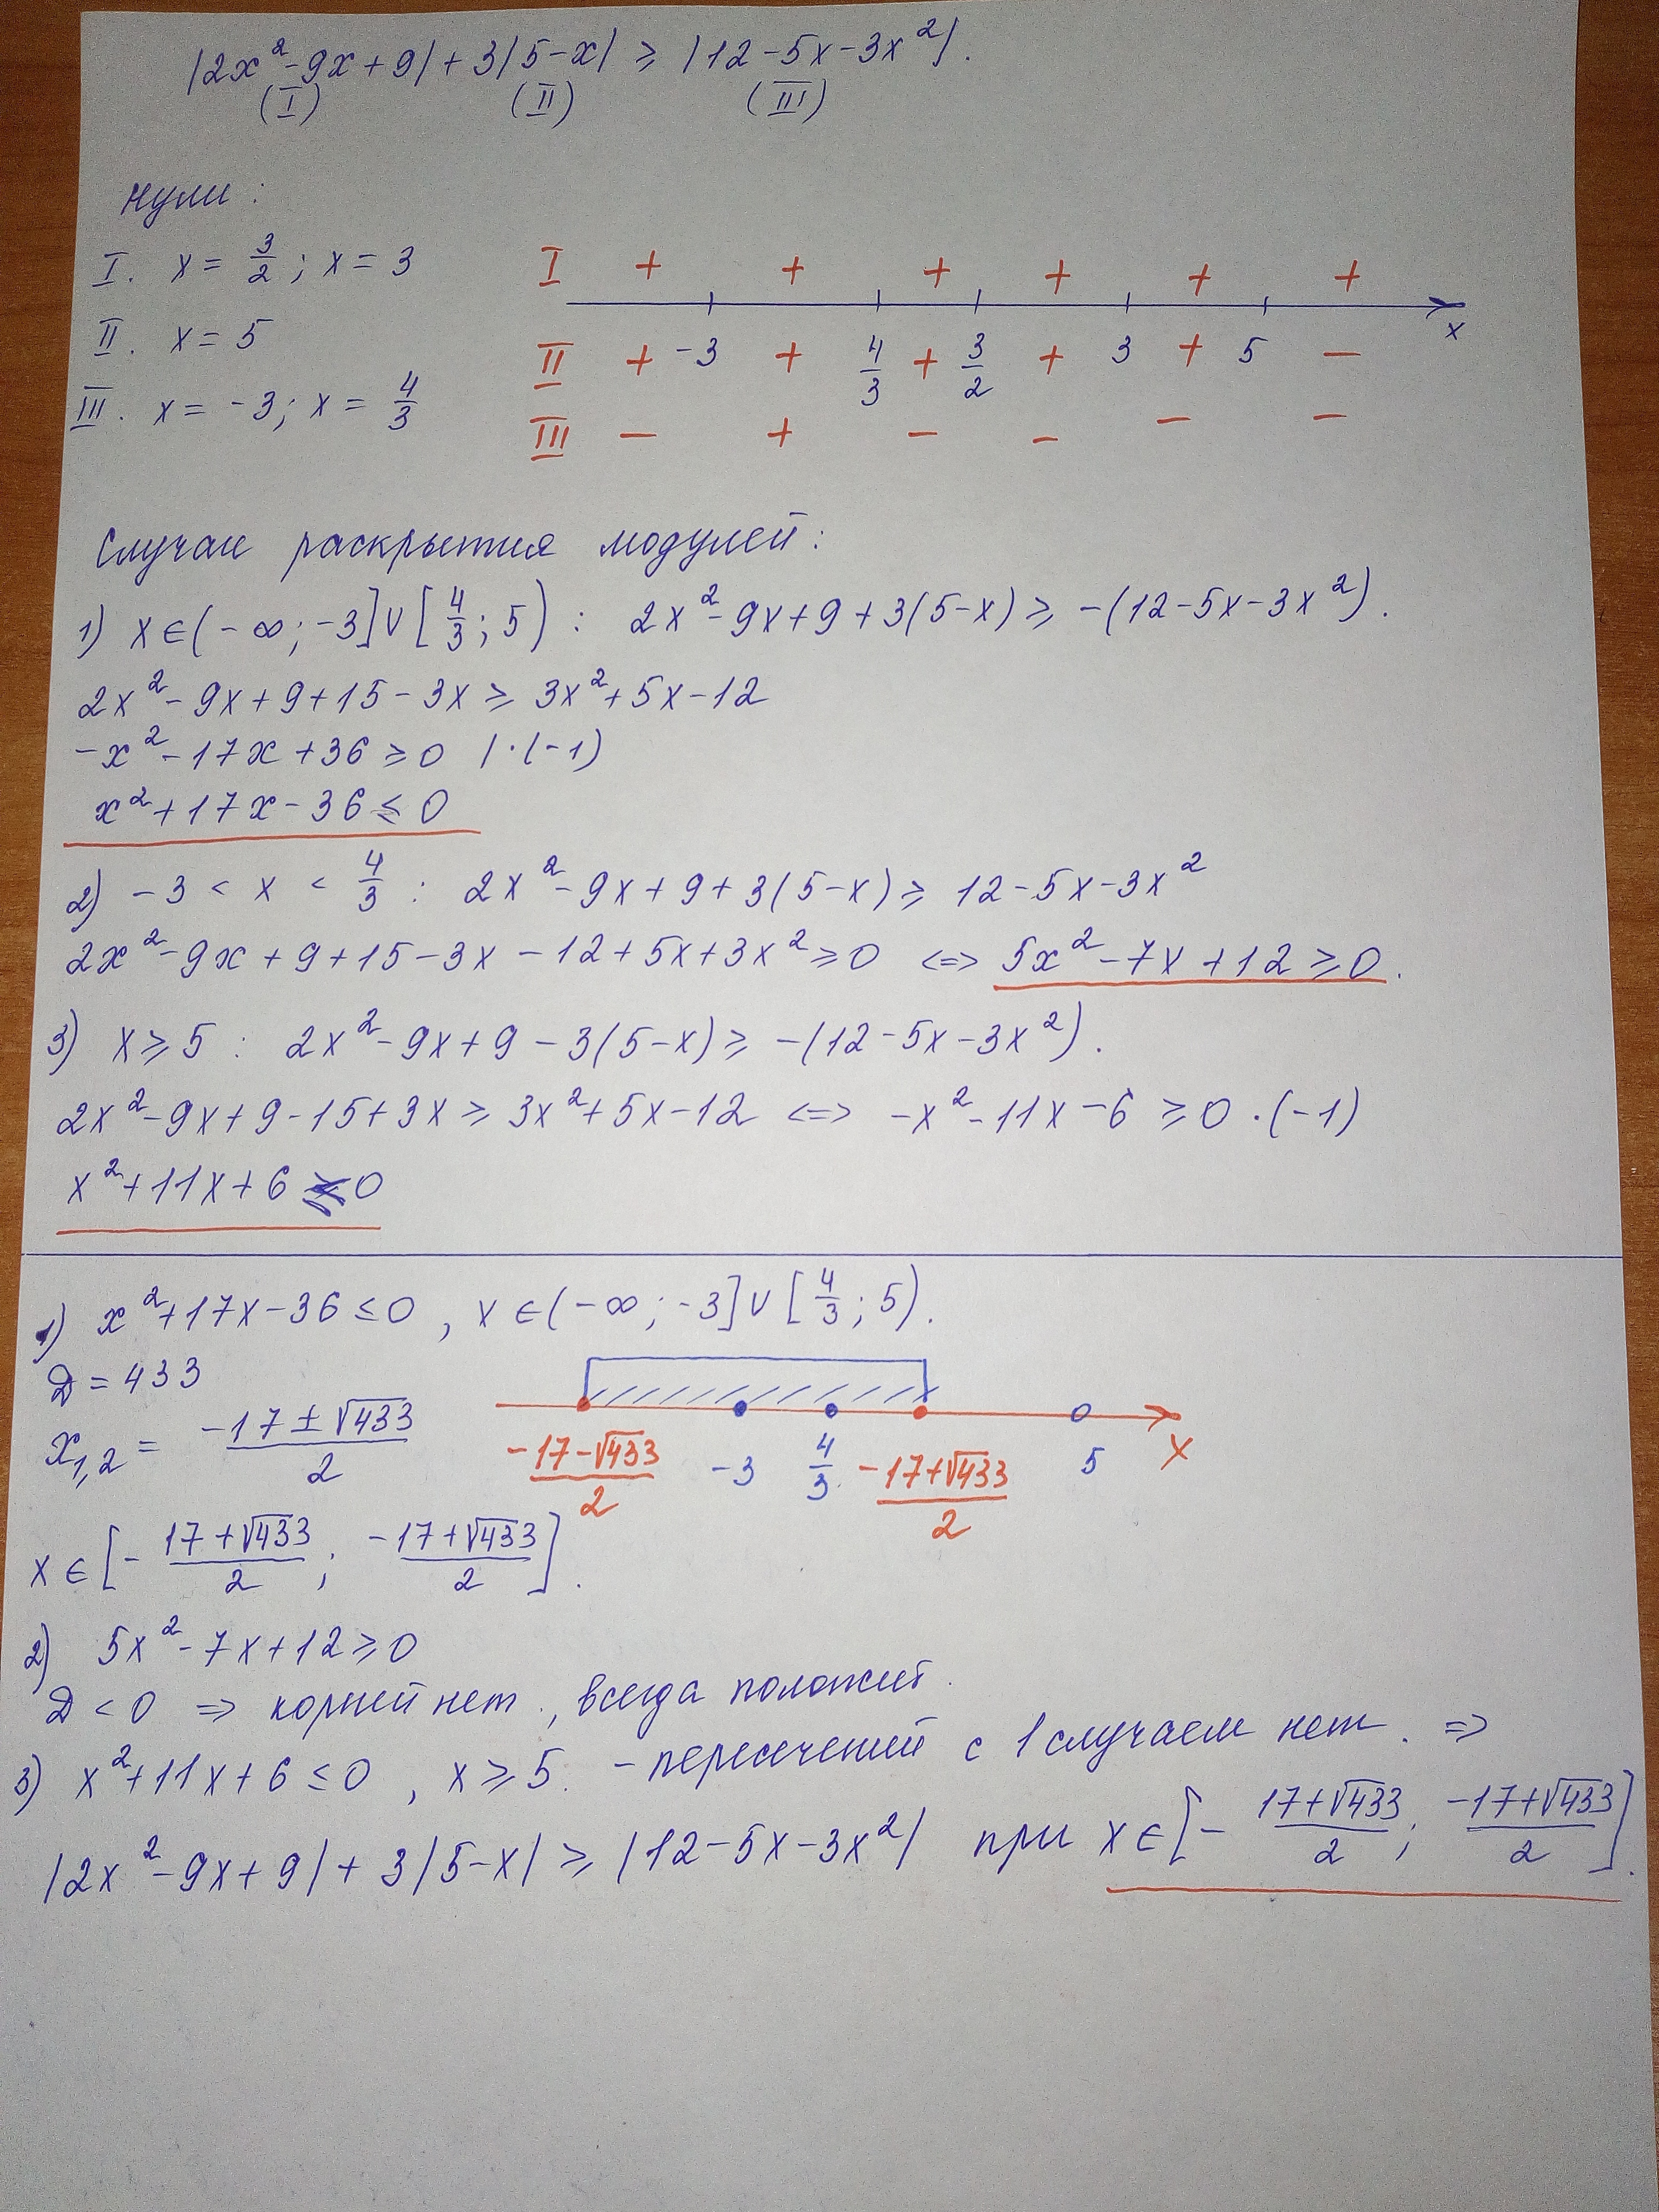 |2x²-9x+9|+3|5-x| ≥ |12-5x-3x²|.
(I) (II) (III)
Нули:
I. x = 3/2; x = 3
II. x = 5
III. x = -3; x = 4/3
I + + + + + +
x
II + -3 + 4/3 + 3/2 + 3 + 5 −
III − + − − − −
Случаи раскрытия модулей:
1) x∈(-∞; -3]∪[4/3; 5) : 2x²-9x+9+3(5-x) ≥ -(12-5x-3x²).
2x²-9x+9+15-3x ≥ 3x²+5x-12
-x²-17x+36 ≥ 0 |·(-1)
x²+17x-36 ≤ 0
2) -3 < x < 4/3 : 2x²-9x+9+3(5-x) ≥ 12-5x-3x²
2x²-9x+9+15-3x-12+5x+3x² ≥ 0 <=> 5x²-7x+12 ≥ 0.
3) x ≥ 5 : 2x²-9x+9-3(5-x) ≥ -(12-5x-3x²).
2x²-9x+9-15+3x ≥ 3x²+5x-12 <=> -x²-11x-6 ≥ 0 ·(-1)
x²+11x+6 ≤ 0
1) x²+17x-36 ≤ 0, x∈(-∞; -3]∪[4/3; 5).
D = 433
x1,2 = (-17±√433)/2
(-17-√433)/2 -3 4/3 (-17+√433)/2 5 x
x∈[-(17+√433)/2; (-17+√433)/2].
2) 5x²-7x+12 ≥ 0
D < 0 => корней нет, всегда положит.
3) x²+11x+6 ≤ 0, x ≥ 5. - пересечений с 1 случаем нет. =>
|2x²-9x+9|+3|5-x| ≥ |12-5x-3x²| при x∈[-(17+√433)/2; (-17+√433)/2].